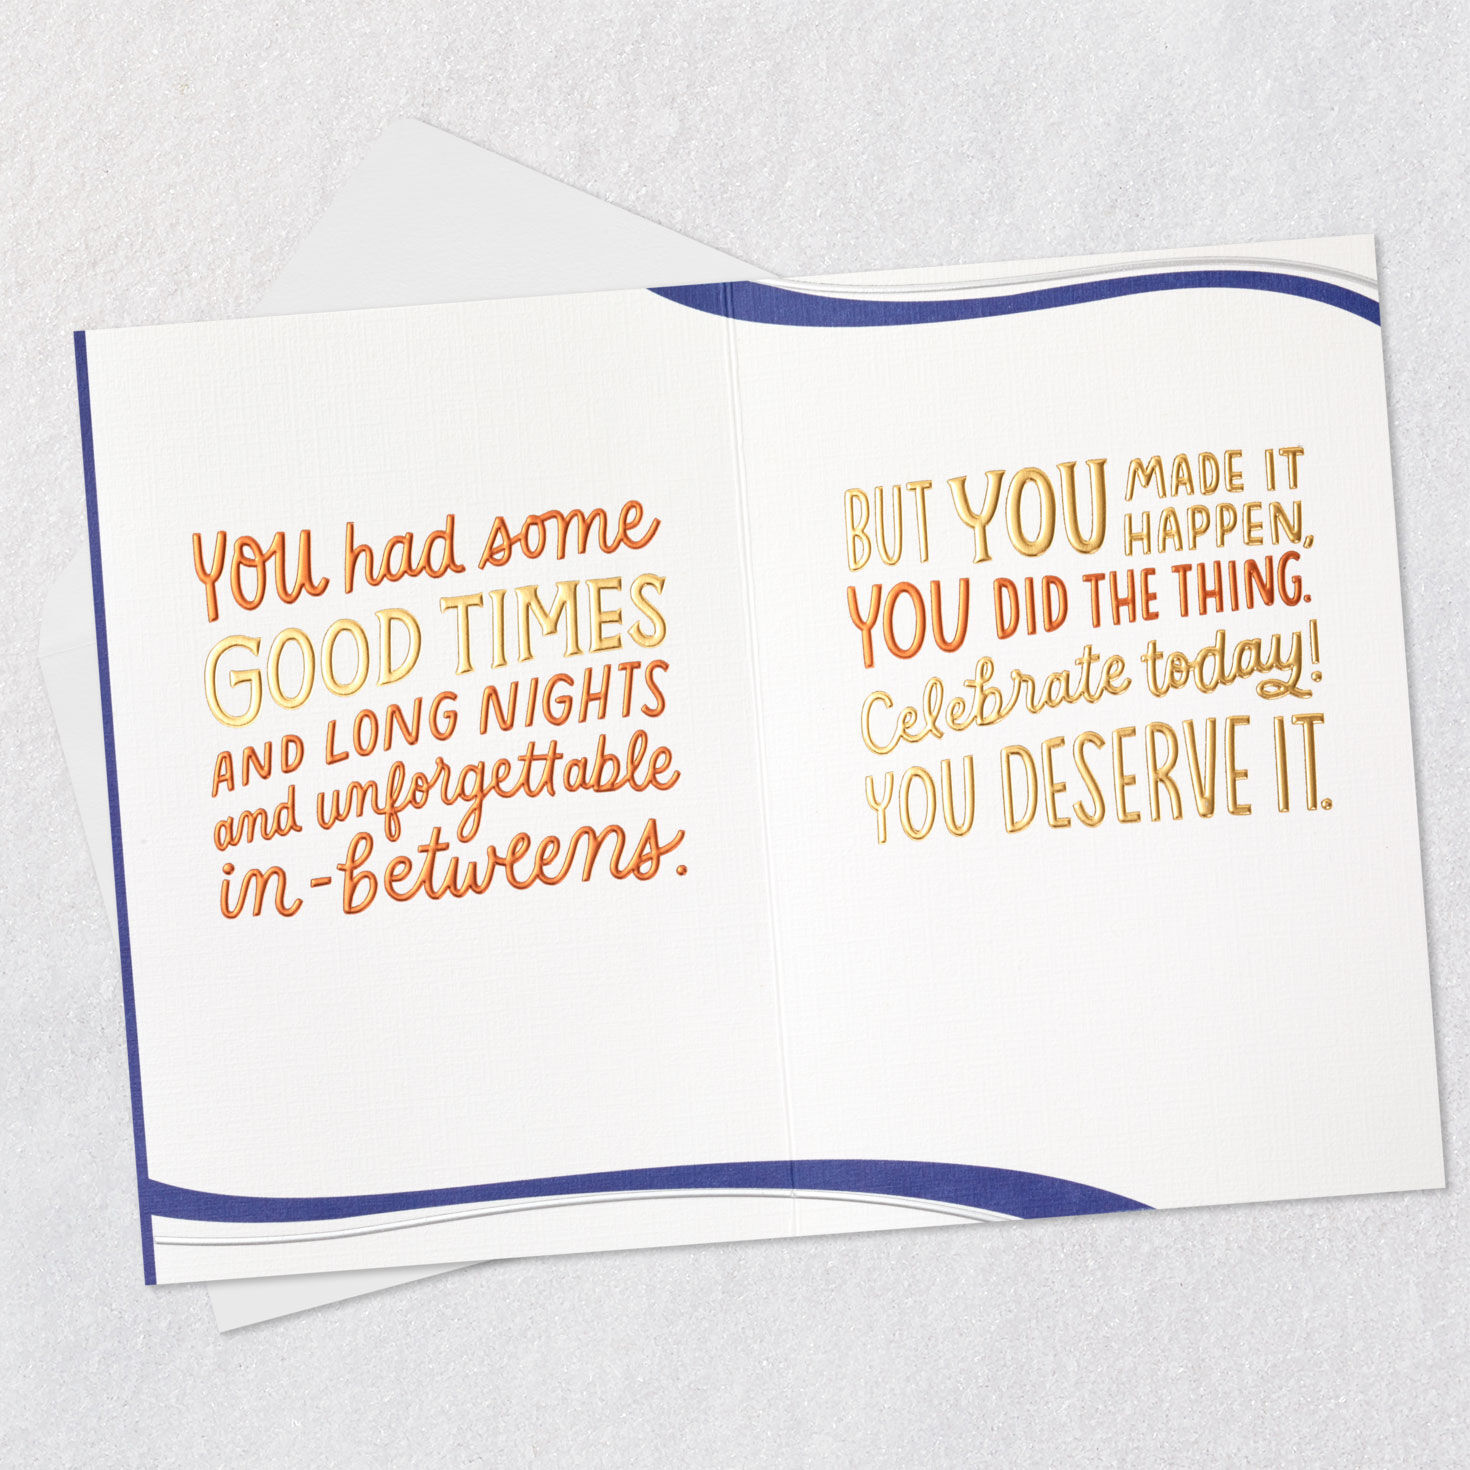 YOU had some
GOOD TIMES
AND LONG NIGHTS
and unforgettable
in-betweens.
BUT YOU MADE IT
HAPPEN,
YOU DID THE THING.
Celebrate today!
YOU DESERVE IT.